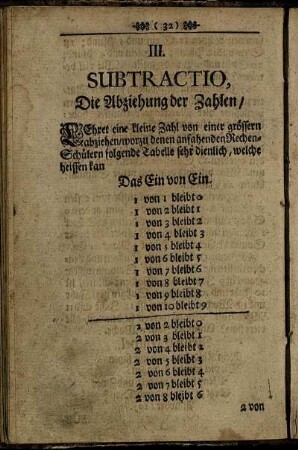 ( 32 )
III.
SUBTRACTIO,
Die Abziehung der Zahlen/
LEhret eine kleine Zahl von einer grössern
abziehen/worzu denen anfahenden Rechen-
Schülern folgende Tabelle sehr dienlich, welche
heissen kan
Das Ein von Ein.
1 von 1 bleibt 0
1 von 2 bleibt 1
1 von 3 bleibt 2
1 von 4 bleibt 3
1 von 5 bleibt 4
1 von 6 bleibt 5
1 von 7 bleibt 6
1 von 8 bleibt 7
1 von 9 bleibt 8
1 von 10 bleibt 9
2 von 2 bleibt 0
2 von 3 bleibt 1
2 von 4 bleibt 2
2 von 5 bleibt 3
2 von 6 bleibt 4
2 von 7 bleibt 5
2 von 8 bleibt 6
2 von